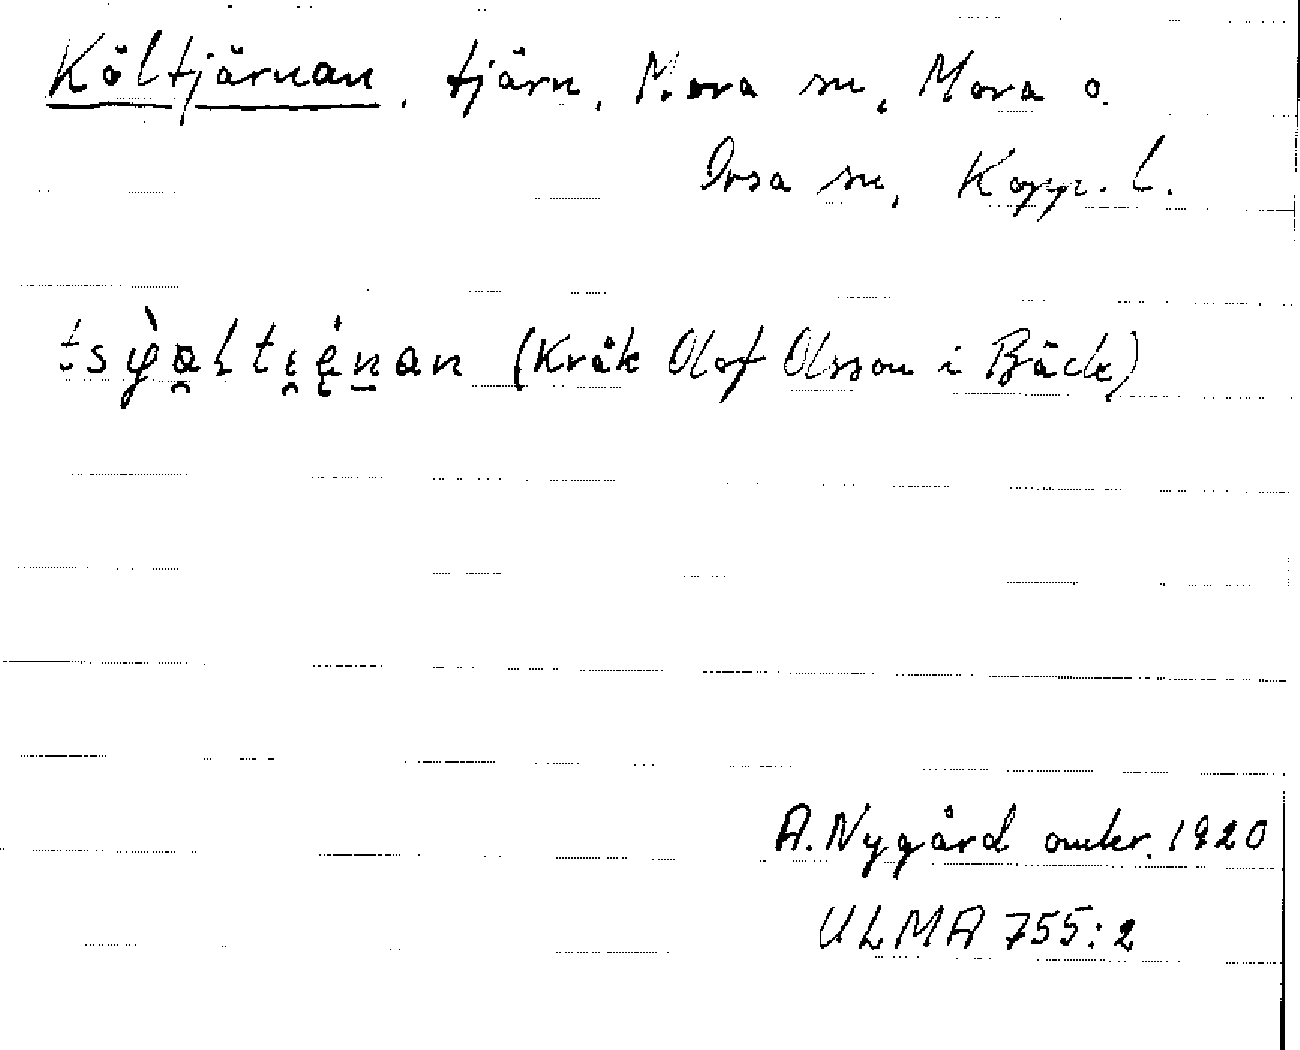 Költjärnan, tjärn, Mora sn, Mora o.
Orsa sn, Kopp. l.
tsỳa̯ltı̯ęnan (Kråk Olof Olsson i Bäck)
A. Nygård omkr. 1920
ULMA 755:2